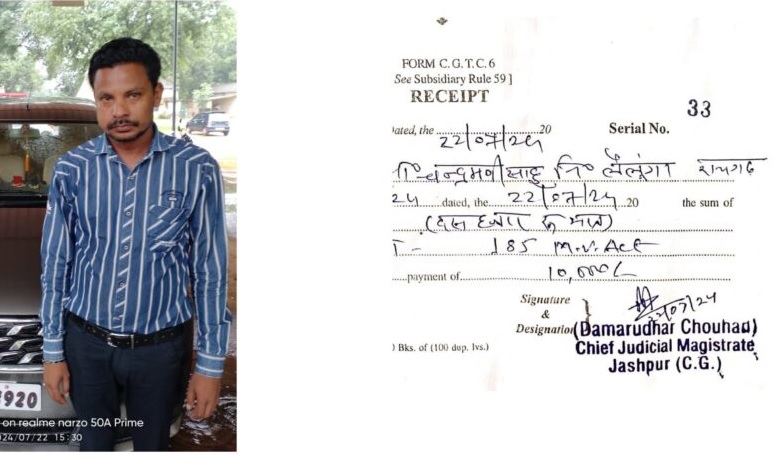 1920
on realme narzo 50A Prime
2024/07/22 15:30
FORM C.G.T.C.6
See Subsidiary Rule 59]
RECEIPT
33
ated, the 22/07/24 20
Serial No.
चन्द्रमणी साहु नि० लैलूंगा रायगढ़
24 dated, the 22/07/24 20 the sum of
(दस हजार रु मात्र)
185 M.V. Act
payment of 10,000/-
Signature
&
Designation
22/07/24
(Damarudhar Chouhan)
Chief Judicial Magistrate
Jashpur (C.G.)
) Bks. of (100 dup. lvs.)